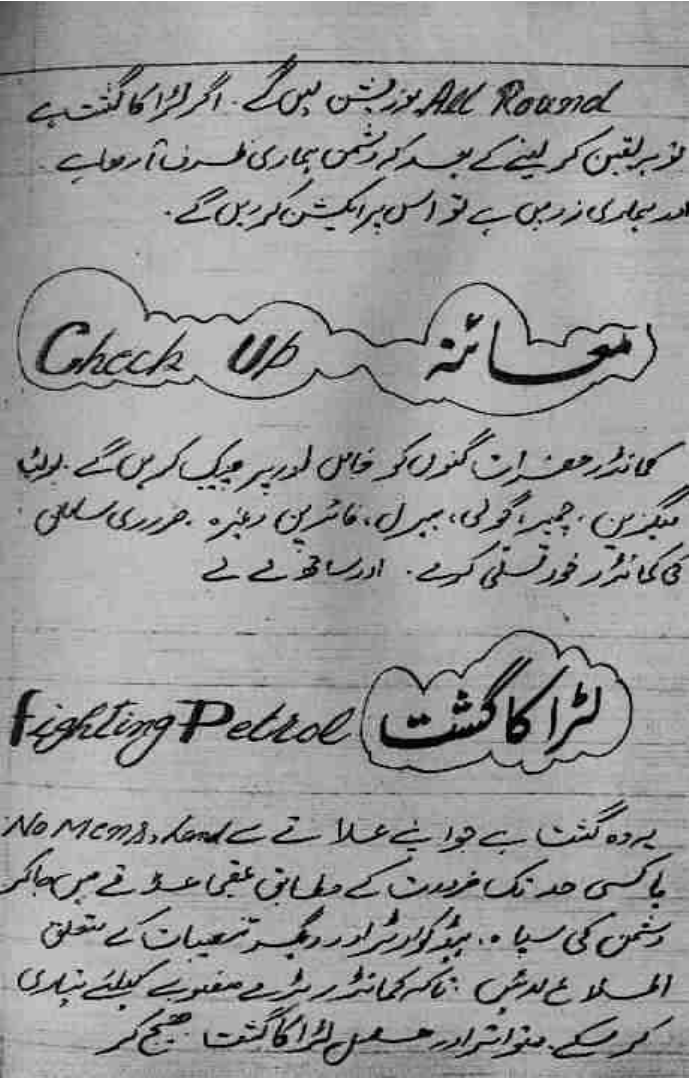 All Round پوزیشن لیں گے۔ اگر لڑاکا گشت ہے
تو یہ یقین کر لینے کے بعد کہ دشمن ہماری طرف آ رہا ہے۔
اور ہماری زد میں ہے تو اس پر ایکشن کر دیں گے۔
معائنہ Check Up
کمانڈر حضرات گنوں کو خاص طور پر چیک کریں گے۔ بولٹ
میگزین، چیمبر، گولی، بیرل، فائرپن وغیرہ۔ ضروری
کی کمانڈر خود تسلی کرے۔ اور ساتھ لے لے
لڑاکا گشت Fighting Petrol
یہ وہ گشت ہے جو اپنے علاقے سے No Mens, Land
یا کسی حد تک ضرورت کے مطابق عقبی علاقے میں جا کر
دشمن کی سپاہ، ہیڈ کوارٹر اور دیگر تنصیبات کے متعلق
اطلاع لائیں تاکہ کمانڈر بڑے منصوبے کیلئے تیاری
کر سکے۔ متواتر اور مسلسل لڑاکا گشت بھیج کر